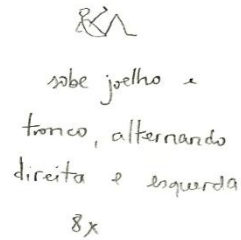 sobe joelho e
tronco, alternando
direita e esquerda
8x